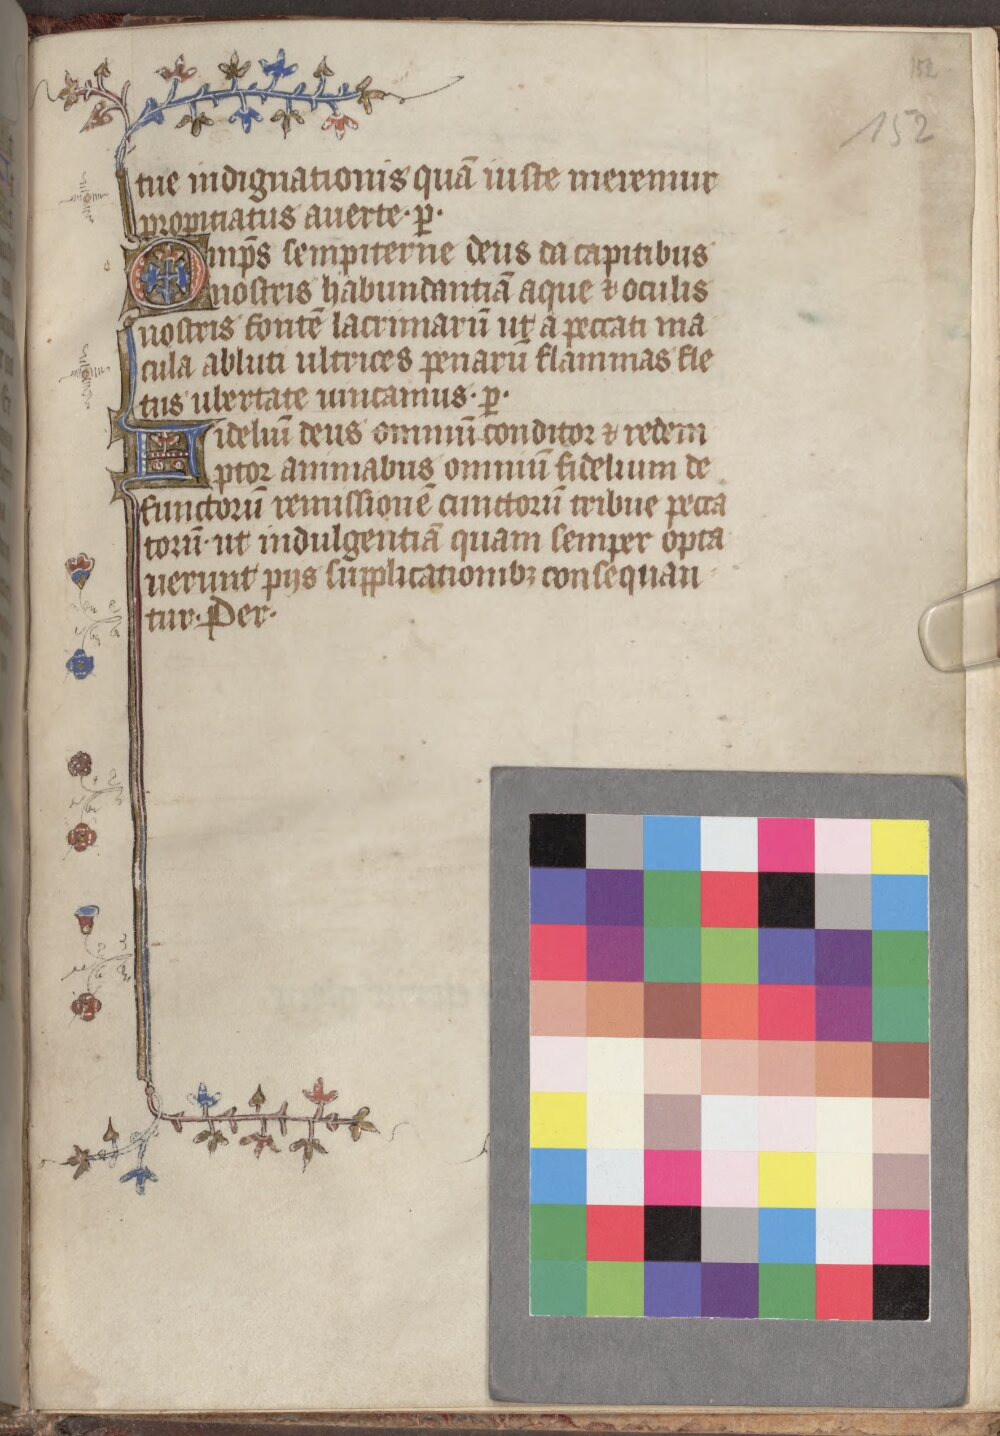 152
152
tue indignationis quā iuste meremur
propitiatus auerte· p̲·
Omp̄s sempiterne deus da capitibus
nostris habundantiā aque ⁊ oculis
nostris fontē lacrimarū ut a peccati ma
cula abluti ultrices penarū flammas fle
tus ubertate uincamus· p̲·
Fideliū deus omniū conditor ⁊ redem
ptor animabus omniū fidelium de
functorū remissionē cunctorū tribue pecca
torū· ut indulgentiā quam semper opta
uerunt pijs supplicationibꝫ consequan
tur· Per·